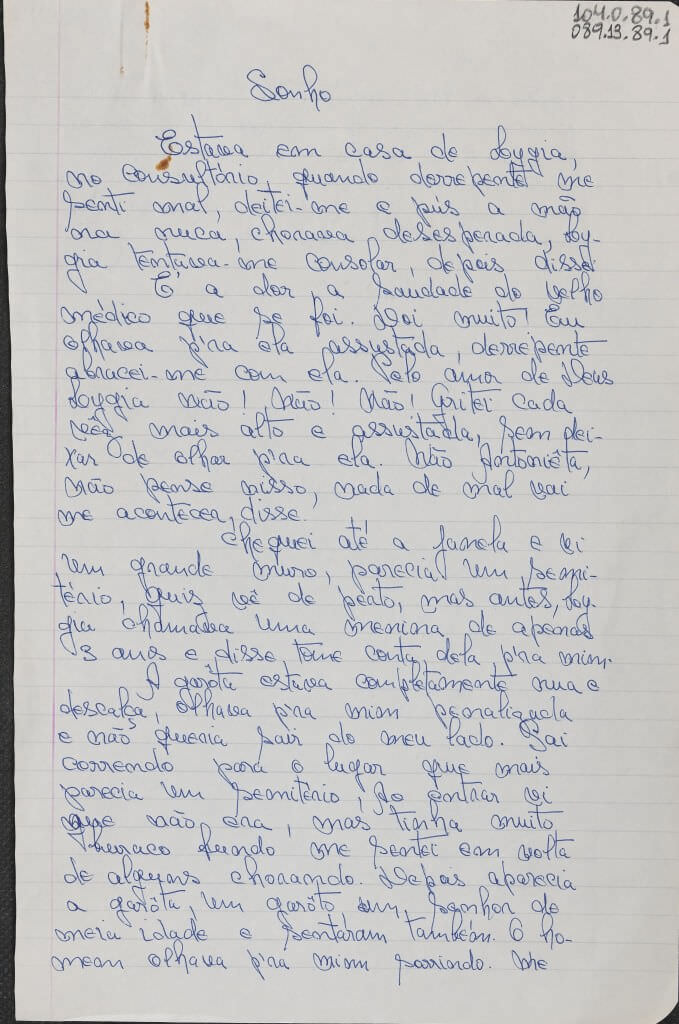 104.0.89.1
089.13.89.1
Sonho
Estava em casa de Lygia,
no consultório, quando derrepente me
senti mal, deitei-me e pús a mão
na nuca, chorava desesperada, Ly-
gia tentava-me consolar, depois disse:
É a dor, a saudade do velho
médico que se foi. Doi muito! Eu
olhava p'ra ela assustada, derrepente
abracei-me com ela. Pelo amor de Deus
Lygia não! Não! Não! Gritei cada
vêz mais alto e assustada, sem dei-
xar de olhar p'ra ela. Não Antoniêta,
não pense nisso, nada de mal vai
me acontecer, disse.
Cheguei até a janela e vi
um grande muro, parecia um semi-
tério, quis vê de perto, mas antes, Ly-
gia chamava uma menina de apenas
3 anos e disse, tome conta dela, p'ra mim.
A garôta estava completamente nua e
descalça, olhava p'ra mim penalizada
e não queria sair do meu lado. Sai
correndo para o lugar que mais
parecia um semitério, Ao entrar vi
que não era, mas tinha muito
buraco fundo me sentei em volta
de alguns chorando. Depois aparecia
a garôta, um garôto um senhor de
meia idade e sentaram também. O ho-
mem olhava p'ra mim sorrindo. Me